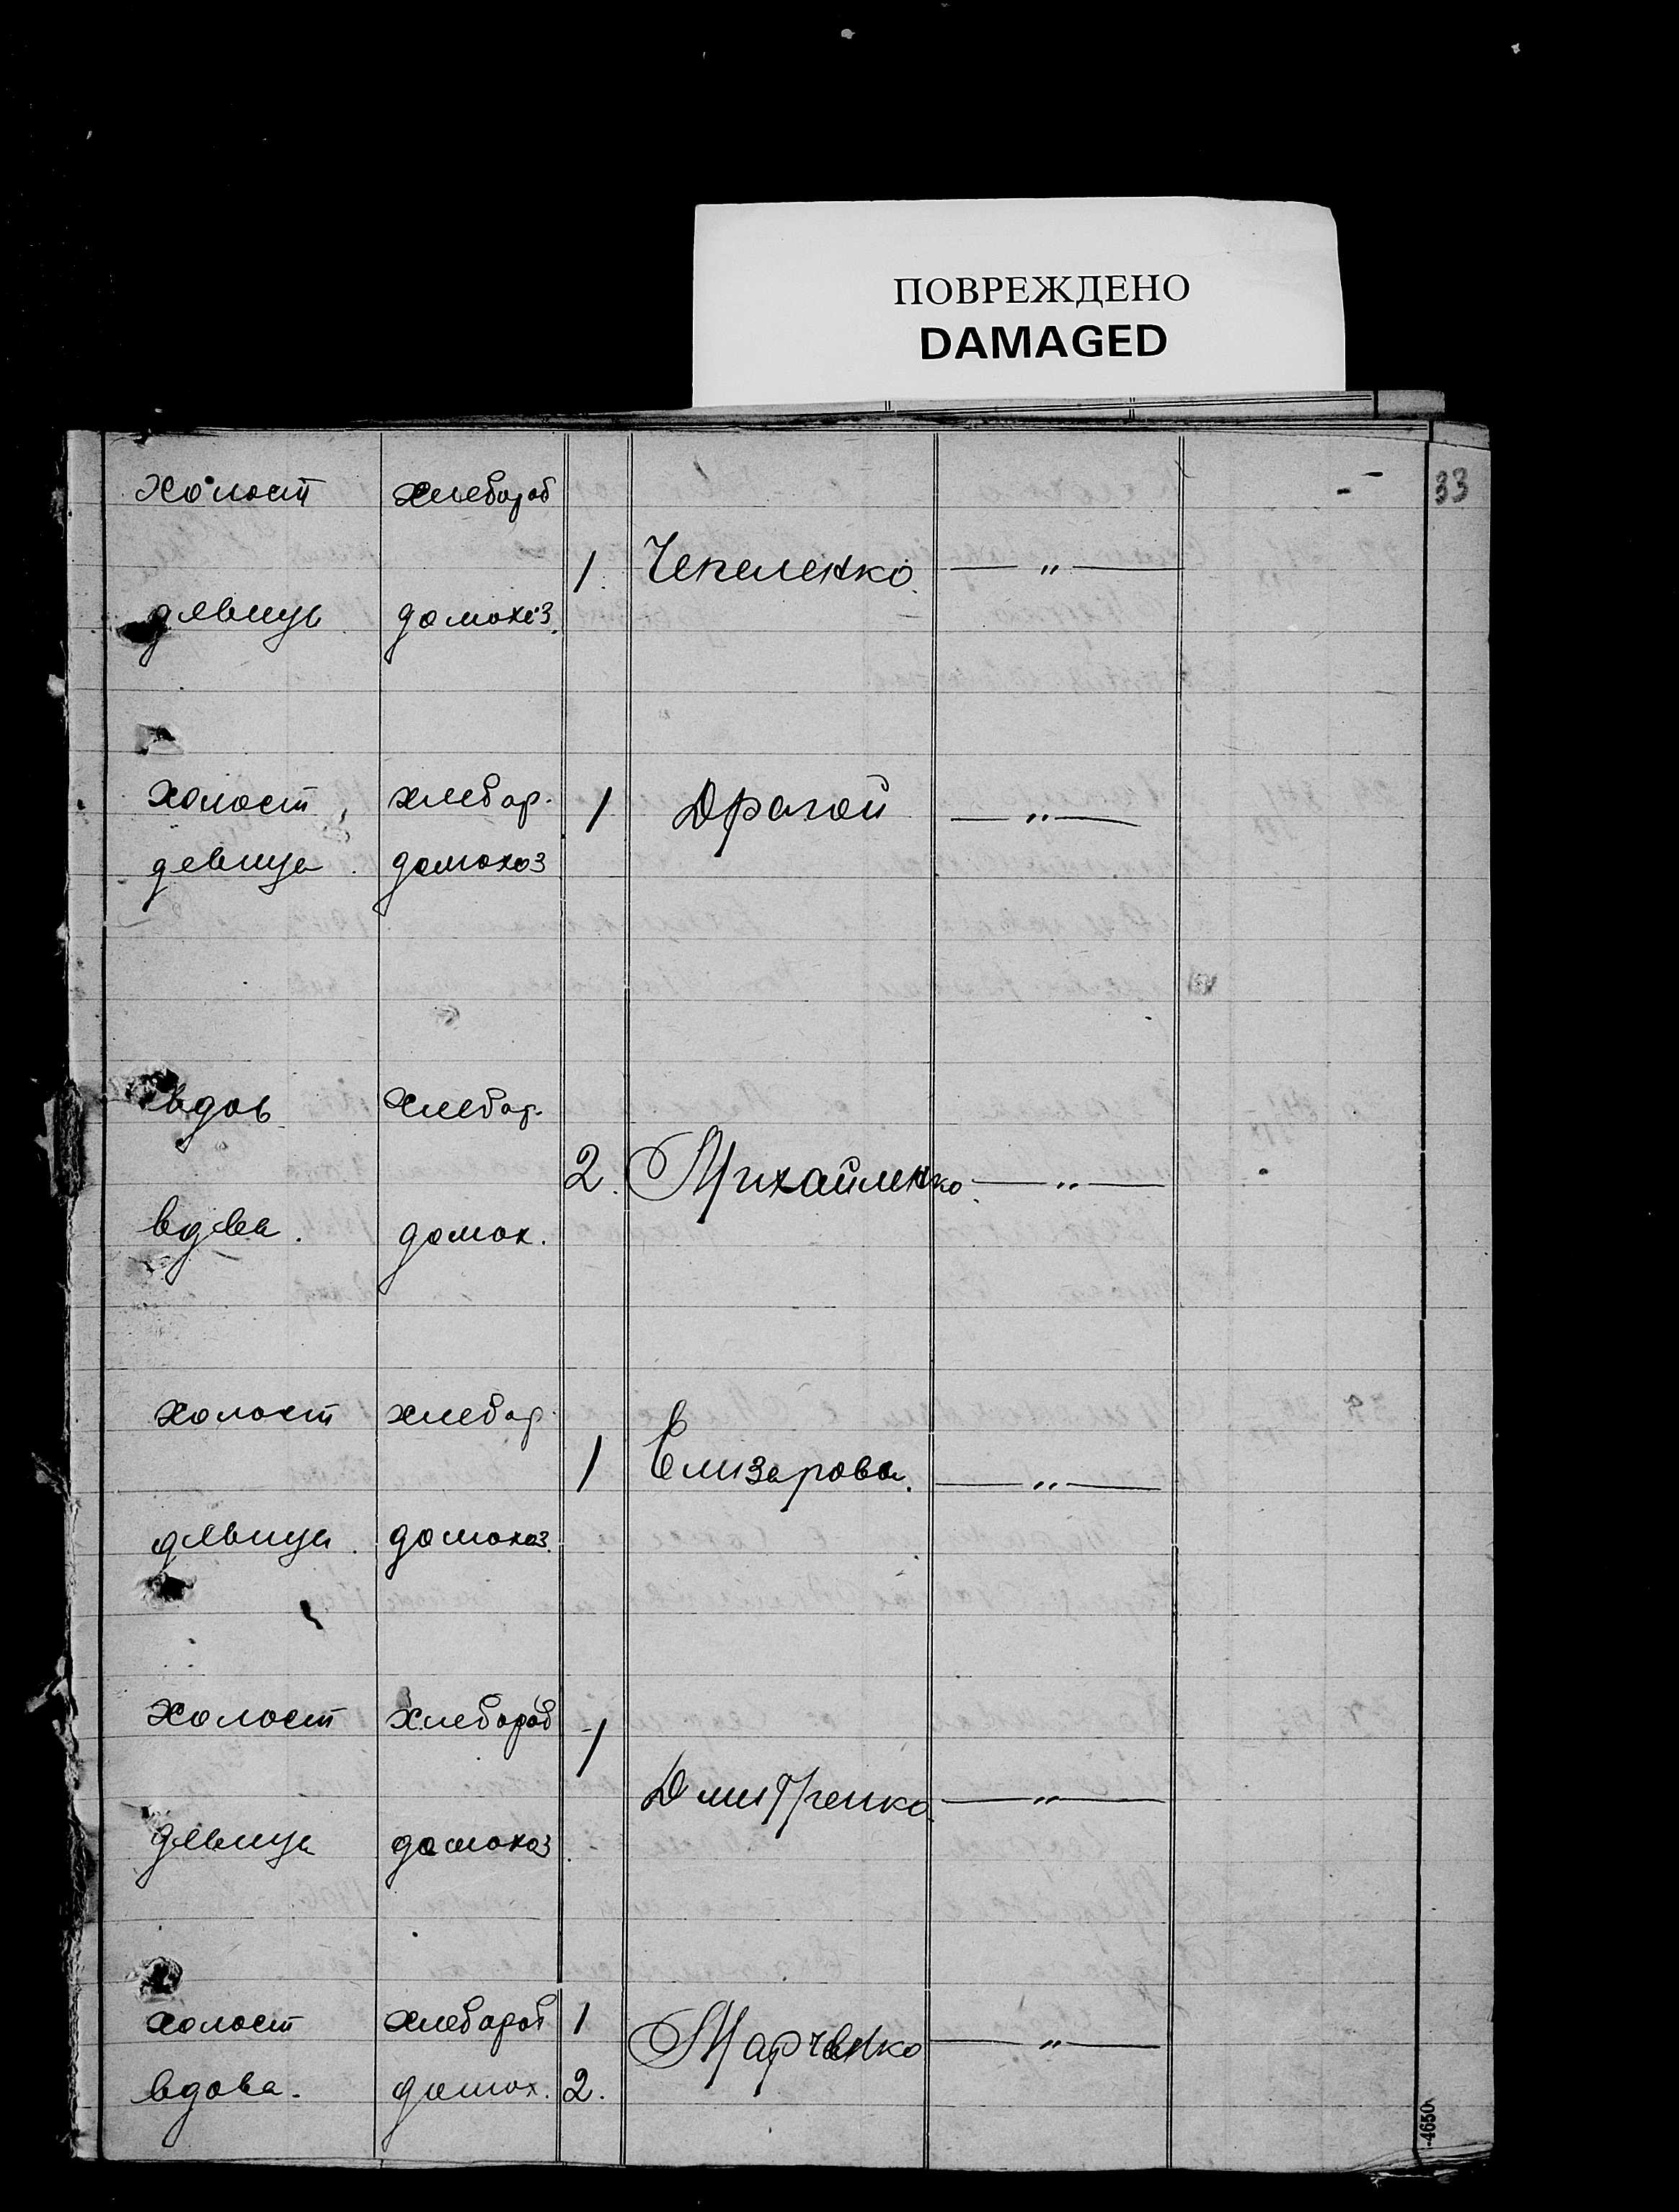 ПОВРЕЖДЕНО
DAMAGED
33
холост хлебороб
1. Чепеленко — " —
девица домохоз.
холост хлебор. 1 Драгой — " —
девица домохоз
вдов хлебор.
2. Михайленко — " —
вдва. домох.
холост хлебор.
1 Елизарова. — " —
девица. домохоз.
холост хлебороб 1
Дмитренко — " —
девица домохоз.
холост хлебороб 1
Марченко — " —
вдова. домох. 2.
4650